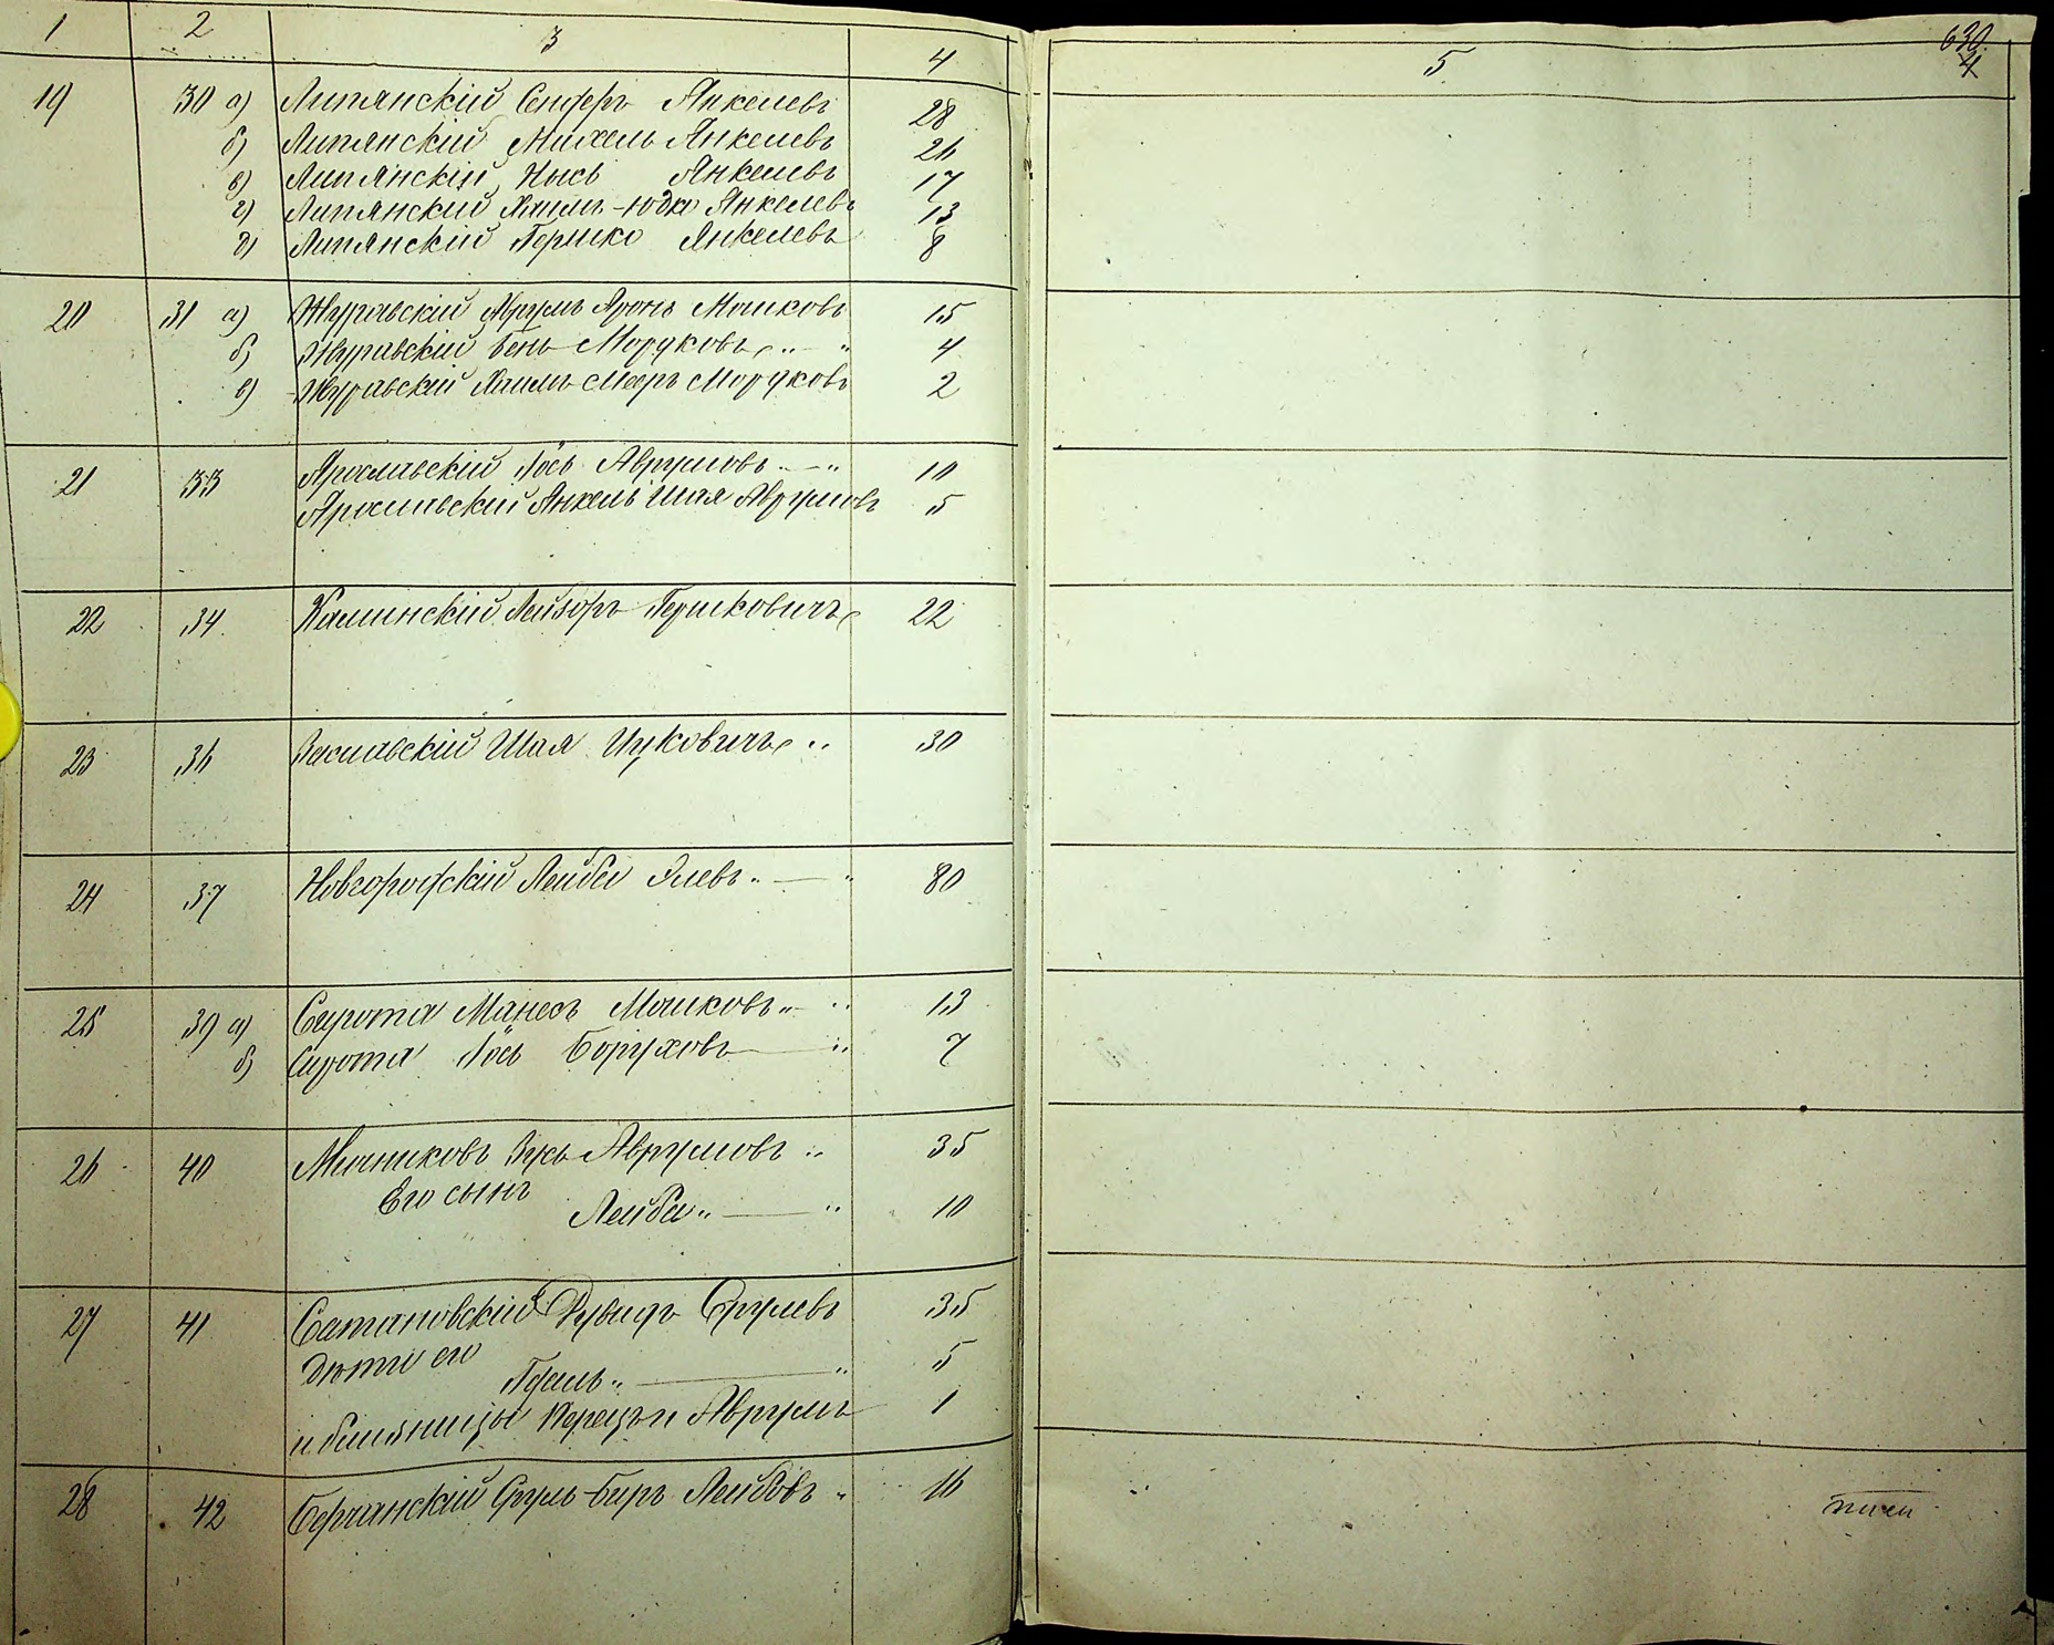 1 2 3 4 5 630 4
19 30 а) Липянскій Сендеръ Янкелевъ 28
б) Липянскій Михель Янкелевъ 26
в) Липянскій Нысь Янкелевъ 17
г) Липянскій Хаимъ-Юдко Янкелевъ 13
д) Липянскій Гершко Янкелевъ 8
20 31 а) Журавскій Аврумъ Аронъ Мошковъ 15
б) Журавскій Бень Мордковъ „ — „ 4
в) Журавскій Хаимъ-Мееръ Мордковъ 2
21 33 Ярославскій Іось Аврумовъ „ — „ 10
Ярославскій Янкель Шая Аврумовъ 5
22 34 Калинскій Лейзоръ Гершковичъ 22
23 36 Заславскій Шая Ицковичъ „ 30
24 37 Новгородскій Лейба Элевъ „ — „ 80
25 39 а) Сирота Манесъ Мошковъ „ — „ 13
б) Сирота Іось Боруховъ — „ 7
26 40 Мечниковъ Зусь Аврумовъ „ 35
Его сынъ
Лейба „ — „ 10
27 41 Сатановскій Дувидъ Срулевъ 35
Дѣти его
Гдаль „ — „ 5
и близницы Перецъ и Аврумъ 1
28 42 Берчанскій Сруль-Беръ Лейбовъ „ 16